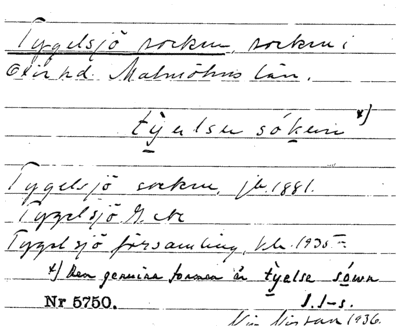 Tygelsjö socken, socken i
Oxie hd. Malmöhus län.
týelse sókein *)
Tygelsjö socken, jb 1881.
Tygelsjö G. k
Tygelsjö församling, 1935
*) Den genuina formen är týelse sówn
Nr 5750.
1936.